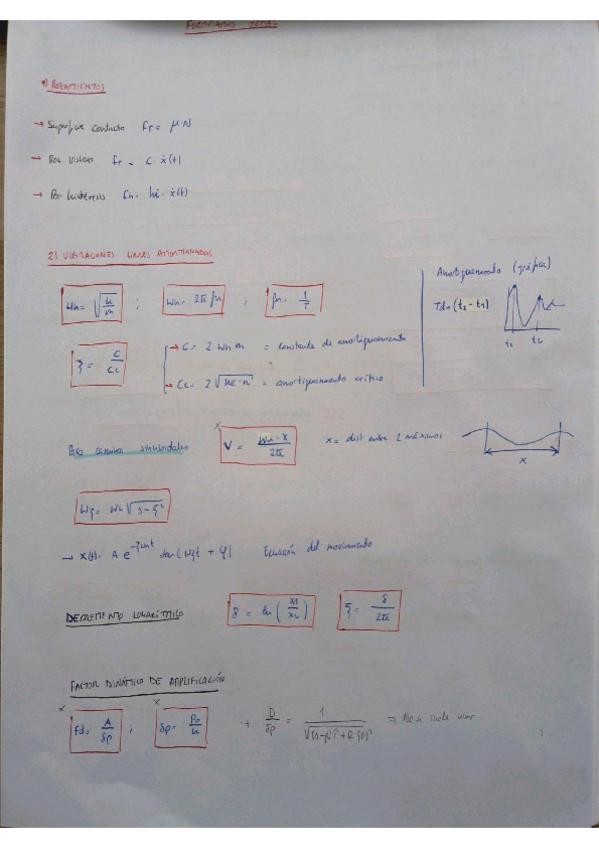 FORMULARIO
1) ROZAMIENTOS
→ Superficie contacto Fr = μ·N
→ Fr = c · ẋ(t)
→ Por histéresis · ẋ(t)
2) VIBRACIONES LIBRES AMORTIGUADAS
Wn = √(k/m) ; Wn = 2π fn ; fn = 1/T
ξ = C/Cc
→ C = 2·Wn·m = constante de amortiguamiento
→ Cc = 2√(k·m) = amortiguamiento crítico
Amortiguamiento (gráfica)
Td = (t2 - t1)
t1 t2
Para caminos sinusoidales V = Wn·X/2π x = dist entre 2 máximos
x
Wξ = Wn √(1-ξ²)
→ X(t) = A · e^(-ξWnt) (Wξt + φ) Ecuación del movimiento
DECREMENTO LOGARÍTMICO δ = ln(X1/X2) ξ = δ/2π
FACTOR DINÁMICO DE AMPLIFICACIÓN
Fd = A/δp ; δp = Po/k → D/δp = 1/ ⇒ No se suele usar